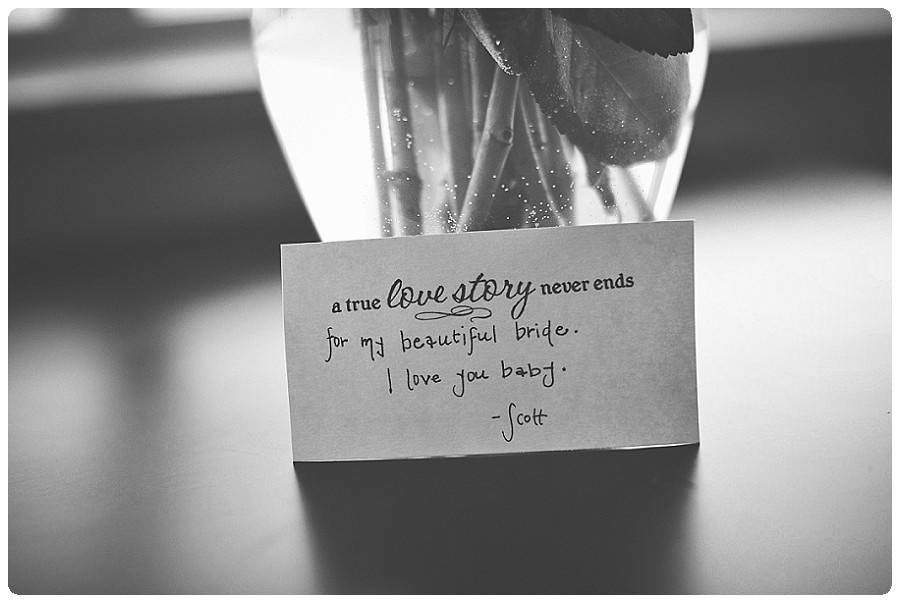 a true love story never ends
for my beautiful bride.
I love you baby.
-Scott